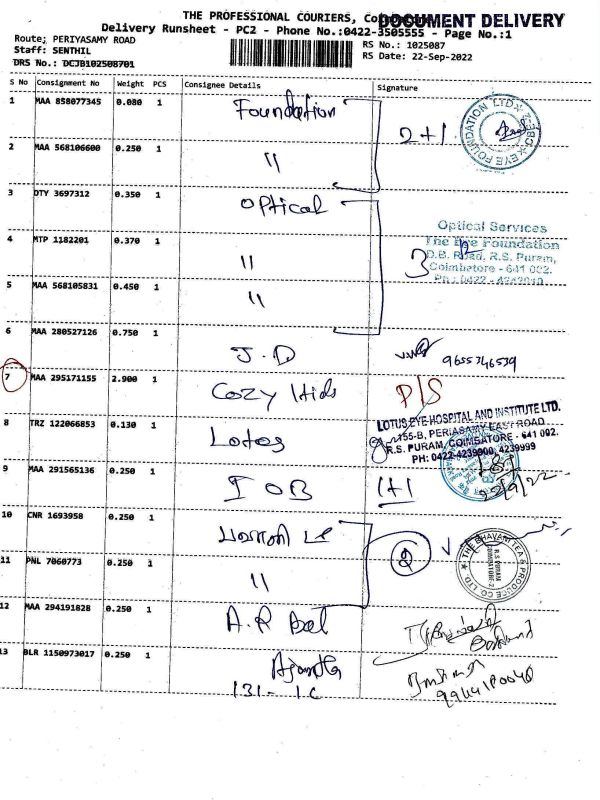 THE PROFESSIONAL COURIERS,
DOCUMENT DELIVERY
Delivery Runsheet - PC2 - Phone No.:0422-3505555 - Page No.:1
Route: PERIYASAMY ROAD
RS No.: 1025087
Staff: SENTHIL
RS Date: 22-Sep-2022
DRS No.: DCJB102508701
S No Consignment No Weight PCS Consignee Details Signature
1 MAA 858077345 0.080 1 Foundation 2+1
EYE FOUNDATION LTD
2 MAA 568106600 0.250 1 11
3 DTY 3697312 0.350 1 Optical
Optical Services
4 MTP 1182201 0.370 1 11 3
The Eye Foundation
D.B. Road, R.S. Puram,
Coimbatore - 641 002.
5 MAA 568105831 0.450 1 11
6 MAA 280527126 0.750 1 J.D 9655346539
7 MAA 295171155 2.900 1 Cozy Kids P/S
8 TRZ 122066853 0.130 1 Lotus
LOTUS EYE HOSPITAL AND INSTITUTE LTD.
155-B, PERIASAMY EAST ROAD
R.S. PURAM, COIMBATORE - 641 002.
PH: 0422-4239900, 4239999
9 MAA 291565136 0.250 1 IOB 1+1
22/9/22
10 CNR 1693958 0.250 1
11 PNL 7060773 0.250 1 11 2
THE BHAVANI TEA & PRODUCE CO LTD
R.S PURAM
12 MAA 294191828 0.250 1 A.R
13 BLR 1150973017 0.250 1
131-